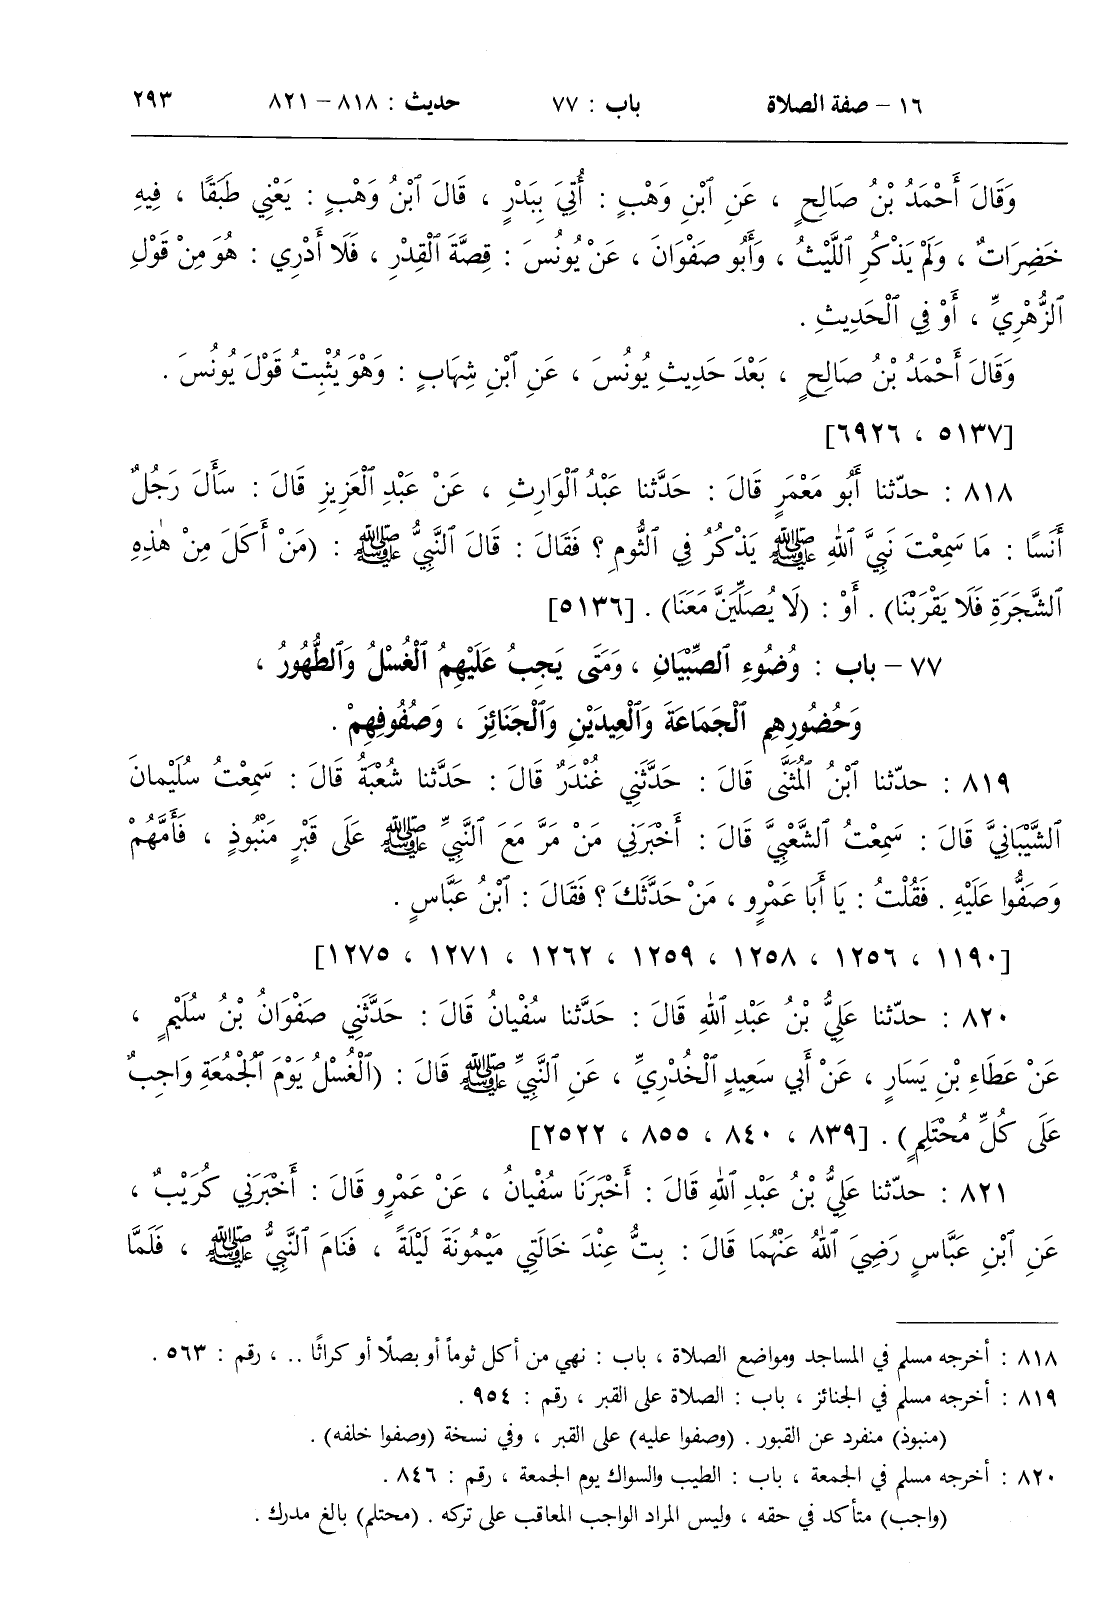 ١٦ – صفة الصلاة باب : ٧٧ حديث : ٨١٨ – ٨٢١ ٢٩٣
وَقَالَ أَحْمَدُ بْنُ صَالِحٍ ، عَنِ ٱبْنِ وَهْبٍ : أُتِيَ بِبَدْرٍ ، قَالَ ٱبْنُ وَهْبٍ : يَعْنِي طَبَقًا ، فِيهِ
خَضِرَاتٌ ، وَلَمْ يَذْكُرِ ٱللَّيْثُ ، وَأَبُو صَفْوَانَ ، عَنْ يُونُسَ : قِصَّةَ ٱلْقِدْرِ ، فَلَا أَدْرِي : هُوَ مِنْ قَوْلِ
ٱلزُّهْرِيِّ ، أَوْ فِي ٱلْحَدِيثِ .
وَقَالَ أَحْمَدُ بْنُ صَالِحٍ ، بَعْدَ حَدِيثِ يُونُسَ ، عَنِ ٱبْنِ شِهَابٍ : وَهْوَ يُثْبِتُ قَوْلَ يُونُسَ .
[٥١٣٧ ، ٦٩٢٦]
٨١٨ : حدّثنا أَبُو مَعْمَرٍ قَالَ : حَدَّثنا عَبْدُ ٱلْوَارِثِ ، عَنْ عَبْدِ ٱلْعَزِيزِ قَالَ : سَأَلَ رَجُلٌ
أَنَسًا : مَا سَمِعْتَ نَبِيَّ ٱللهِ ﷺ يَذْكُرُ فِي ٱلثُّومِ ؟ فَقَالَ : قَالَ ٱلنَّبِيُّ ﷺ : (مَنْ أَكَلَ مِنْ هٰذِهِ
ٱلشَّجَرَةِ فَلَا يَقْرَبْنَا) . أَوْ : (لَا يُصَلِّيَنَّ مَعَنَا) . [٥١٣٦]
٧٧ – باب : وُضُوءِ ٱلصِّبْيَانِ ، وَمَتَى يَجِبُ عَلَيْهِمُ ٱلْغُسْلُ وَٱلطُّهُورُ ،
وَحُضُورِهِمِ ٱلْجَمَاعَةَ وَٱلْعِيدَيْنِ وَٱلْجَنَائِزَ ، وَصُفُوفِهِمْ .
٨١٩ : حدّثنا ٱبْنُ ٱلْمُثَنَّى قَالَ : حَدَّثَنِي غُنْدَرٌ قَالَ : حَدَّثنا شُعْبَةُ قَالَ : سَمِعْتُ سُلَيْمانَ
ٱلشَّيْبَانِيَّ قَالَ : سَمِعْتُ ٱلشَّعْبِيَّ قَالَ : أَخْبَرَنِي مَنْ مَرَّ مَعَ ٱلنَّبِيِّ ﷺ عَلَى قَبْرٍ مَنْبُوذٍ ، فَأَمَّهُمْ
وَصَفُّوا عَلَيْهِ . فَقُلْتُ : يَا أَبَا عَمْرٍو ، مَنْ حَدَّثَكَ ؟ فَقَالَ : ٱبْنُ عَبَّاسٍ .
[١١٩٠ ، ١٢٥٦ ، ١٢٥٨ ، ١٢٥٩ ، ١٢٦٢ ، ١٢٧١ ، ١٢٧٥]
٨٢٠ : حدّثنا عَلِيُّ بْنُ عَبْدِ ٱللهِ قَالَ : حَدَّثنا سُفْيانُ قَالَ : حَدَّثَنِي صَفْوَانُ بْنُ سُلَيْمٍ ،
عَنْ عَطَاءِ بْنِ يَسَارٍ ، عَنْ أَبِي سَعِيدٍ ٱلْخُدْرِيِّ ، عَنِ ٱلنَّبِيِّ ﷺ قَالَ : (ٱلْغُسْلُ يَوْمَ ٱلْجُمُعَةِ وَاجِبٌ
عَلَى كُلِّ مُحْتَلِمٍ) . [٨٣٩ ، ٨٤٠ ، ٨٥٥ ، ٢٥٢٢]
٨٢١ : حدّثنا عَلِيُّ بْنُ عَبْدِ ٱللهِ قَالَ : أَخْبَرَنَا سُفْيانُ ، عَنْ عَمْرٍو قَالَ : أَخْبَرَنِي كُرَيْبٌ ،
عَنِ ٱبْنِ عَبَّاسٍ رَضِيَ ٱللهُ عَنْهُمَا قَالَ : بِتُّ عِنْدَ خَالَتِي مَيْمُونَةَ لَيْلَةً ، فَنَامَ ٱلنَّبِيُّ ﷺ ، فَلَمَّا
٨١٨ : أخرجه مسلم في المساجد ومواضع الصلاة ، باب : نهي من أكل ثوماً أو بصلًا أو كراثًا .. ، رقم : ٥٦٣ .
٨١٩ : أخرجه مسلم في الجنائز ، باب : الصلاة على القبر ، رقم : ٩٥٤ .
(منبوذ) منفرد عن القبور . (وصفوا عليه) على القبر ، وفي نسخة (وصفوا خلفه) .
٨٢٠ : أخرجه مسلم في الجمعة ، باب : الطيب والسواك يوم الجمعة ، رقم : ٨٤٦ .
(واجب) متأكد في حقه ، وليس المراد الواجب المعاقب على تركه . (محتلم) بالغ مدرك .